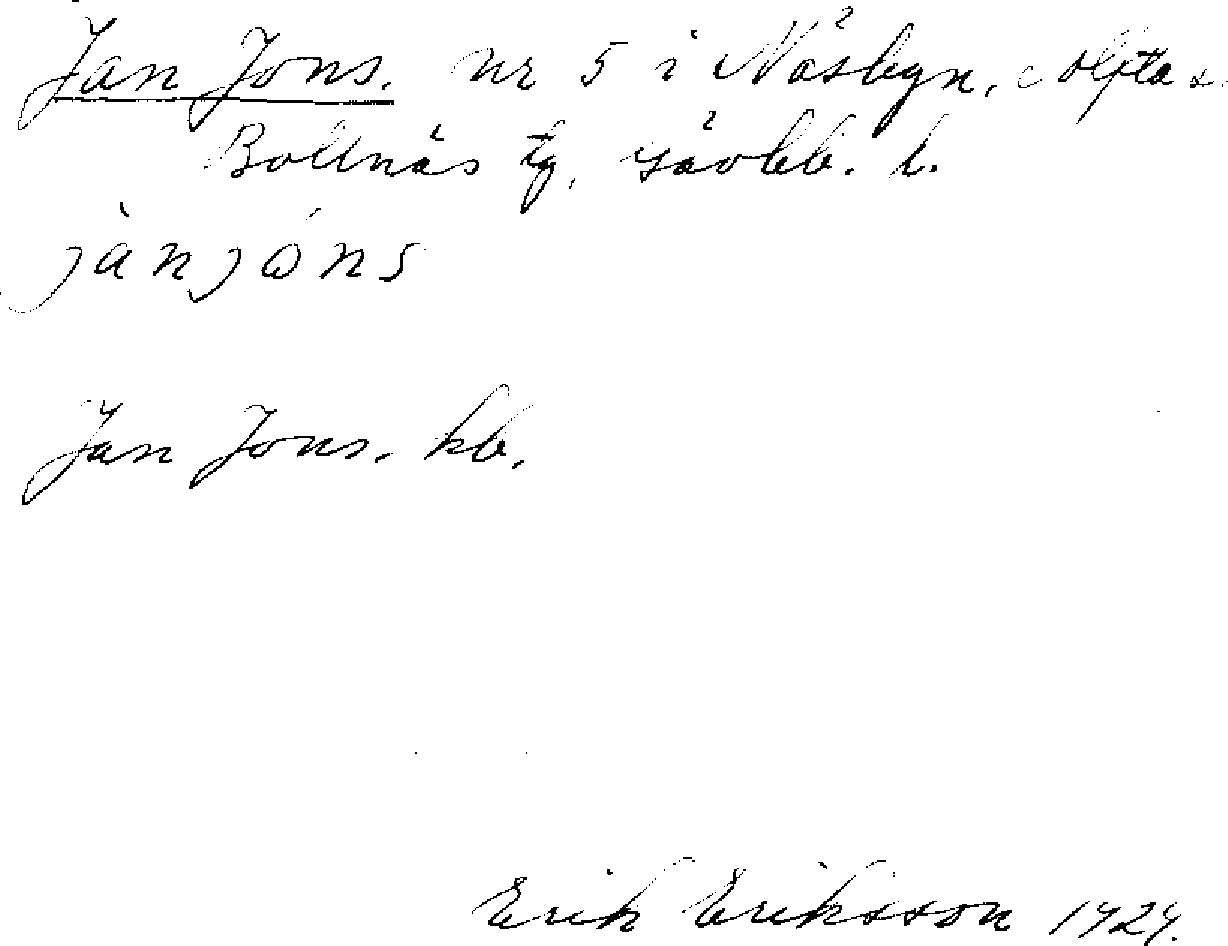 Jan Jons. nr 5 i Näsbyn, Alfta s.
Bollnäs tg, Gävleb. l.
jànjóns
Jan Jons. kb.
Erik Eriksson 1924.